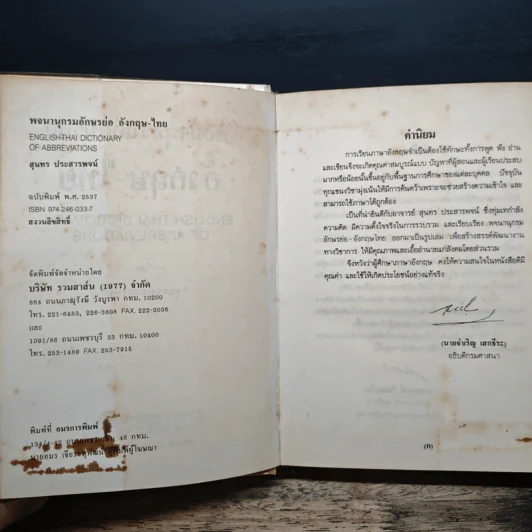 พจนานุกรมอักษรย่อ อังกฤษ-ไทย
ENGLISH-THAI DICTIONARY
OF ABBREVIATIONS
สุนทร ประสารพจน์
ฉบับพิมพ์ พ.ศ. 2537
ISBN 974-246-033-7
สงวนลิขสิทธิ์
จัดพิมพ์จัดจำหน่ายโดย
บริษัท รวมสาส์น (1977) จำกัด
864 ถนนภาณุรังษี วังบูรพา กทม. 10200
โทร. 221-6483, 226-3808 FAX. 222-2036
และ
1091/66 ถนนเพชรบุรี 33 กทม. 10400
โทร. 253-1489 FAX. 253-7915
พิมพ์ที่ อมรการพิมพ์
46 กทม.
นายอมร ผู้พิมพ์ผู้โฆษณา
คำนิยม
การเรียนภาษาอังกฤษจำเป็นต้องใช้ทักษะทั้งการพูด ฟัง อ่าน
และเขียนจึงจะเกิดคุณค่าสมบูรณ์แบบ ปัญหาที่ผู้สอนและผู้เรียนประสบ
มากหรือน้อยนั้นขึ้นอยู่กับพื้นฐานการศึกษาของแต่ละบุคคล ปัจจุบัน
ทุกแขนงวิชามุ่งเน้นให้มีการค้นคว้าเพราะจะช่วยสร้างความเข้าใจ และ
สามารถใช้ภาษาได้ถูกต้อง
เป็นที่น่ายินดีกับอาจารย์ สุนทร ประสารพจน์ ซึ่งทุ่มเทกำลัง
ความคิด มีความตั้งใจจริงในการรวบรวม และเรียบเรียง พจนานุกรม
อักษรย่อ-อังกฤษไทย ออกมาเป็นรูปเล่ม เพื่อสร้างสรรค์พัฒนางาน
ทางวิชาการ ให้มีคุณภาพและเอื้ออำนวยแก่สังคมโดยส่วนรวม
จึงหวังว่าผู้ศึกษาภาษาอังกฤษ คงให้ความสนใจในหนังสือดีมี
คุณค่า และใช้ให้เกิดประโยชน์อย่างแท้จริง
(นายจำเริญ เสกธีระ)
อธิบดีกรมศาสนา